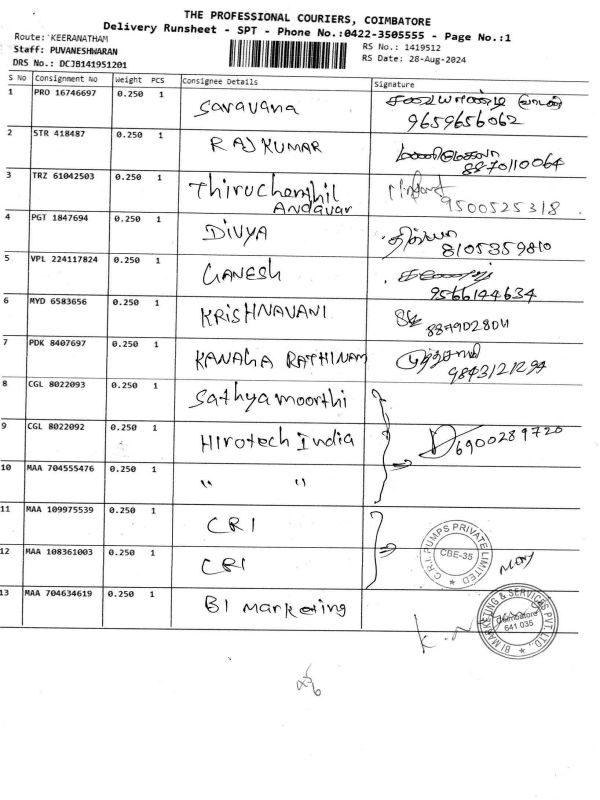 THE PROFESSIONAL COURIERS, COIMBATORE
Delivery Runsheet - SPT - Phone No.:0422-3505555 - Page No.:1
Route: KEERANATHAM
RS No.: 1419512
Staff: PUVANESHWARAN
RS Date: 28-Aug-2024
DRS No.: DCJB141951201
S No Consignment No Weight PCS Consignee Details Signature
1 PRO 16746697 0.250 1 Saravana
9659656062
2 STR 418487 0.250 1 RAJ KUMAR
8870110064
3 TRZ 61042503 0.250 1 Thiruchenghil
Andavar 9500525318
4 PGT 1847694 0.250 1 DIVYA திவ்யா
8105359810
5 VPL 224117824 0.250 1 GANESH
9566144634
6 MYD 6583656 0.250 1 KRISHNAVANI
8879028011
7 PDK 8407697 0.250 1 KANAGA RATHINAM
8 CGL 8022093 0.250 1 Sathyamoorthi
9 CGL 8022092 0.250 1 Hirotech India 6900289720
10 MAA 704555476 0.250 1 " "
11 MAA 109975539 0.250 1 CRI
12 MAA 108361003 0.250 1 CRI
C.R.I. PUMPS PRIVATE LIMITED
CBE-35
13 MAA 704634619 0.250 1 BI Marketing
BI MARKETING & SERVICES PVT. LTD.,
Coimbatore
641 035